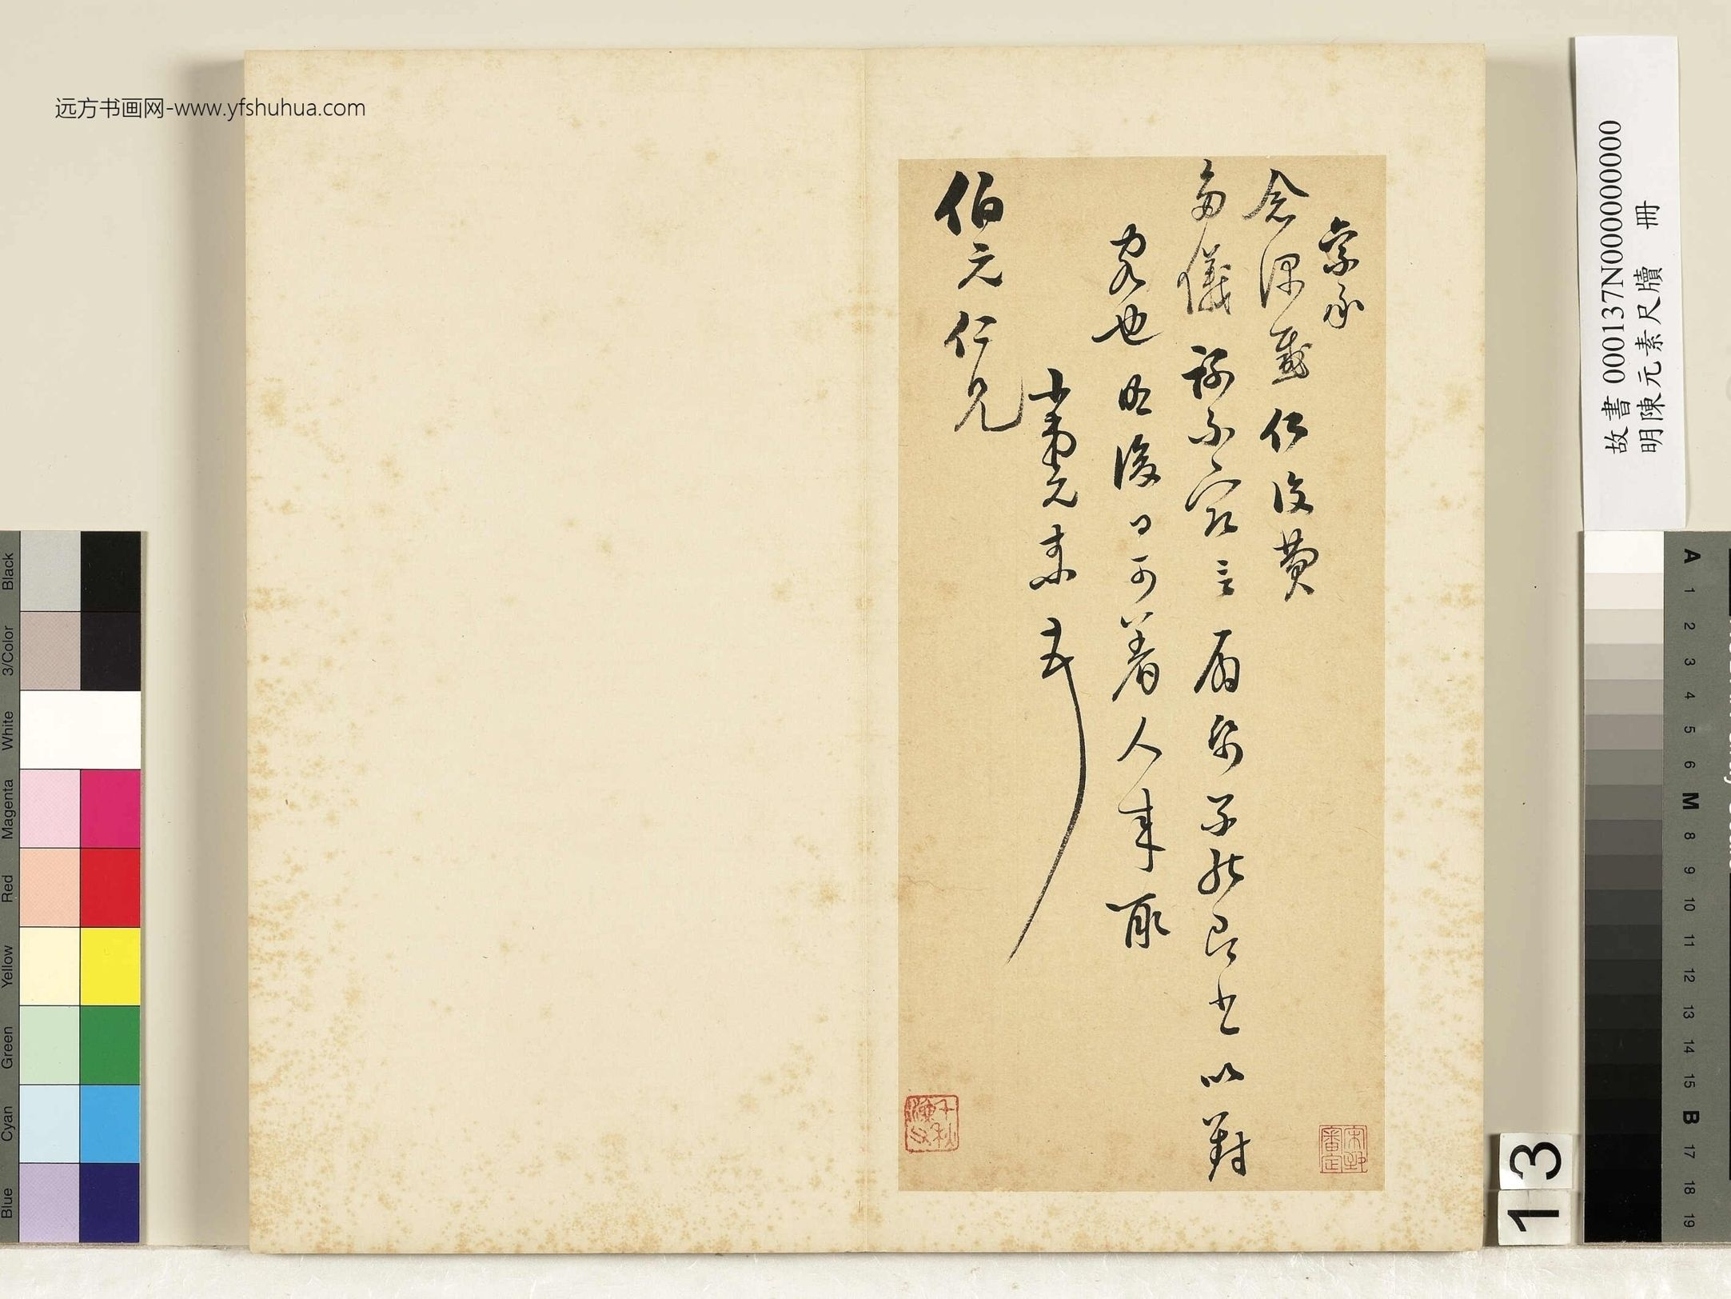 远方书画网-www.yfshuhua.com
故書 000137N000000000
明陳元素尺牘 冊
蒙承
念深感仁後費
多儀 謝不容言 扇 不能即 上以對
客也 明後日可著人來取
小弟元素
伯元仁兄
13
Black
3/Color
White
Magenta
Red
Yellow
Green
Cyan
Blue
A
1
2
3
4
5
6
M
8
9
10
11
12
13
14
15
B
17
18
19